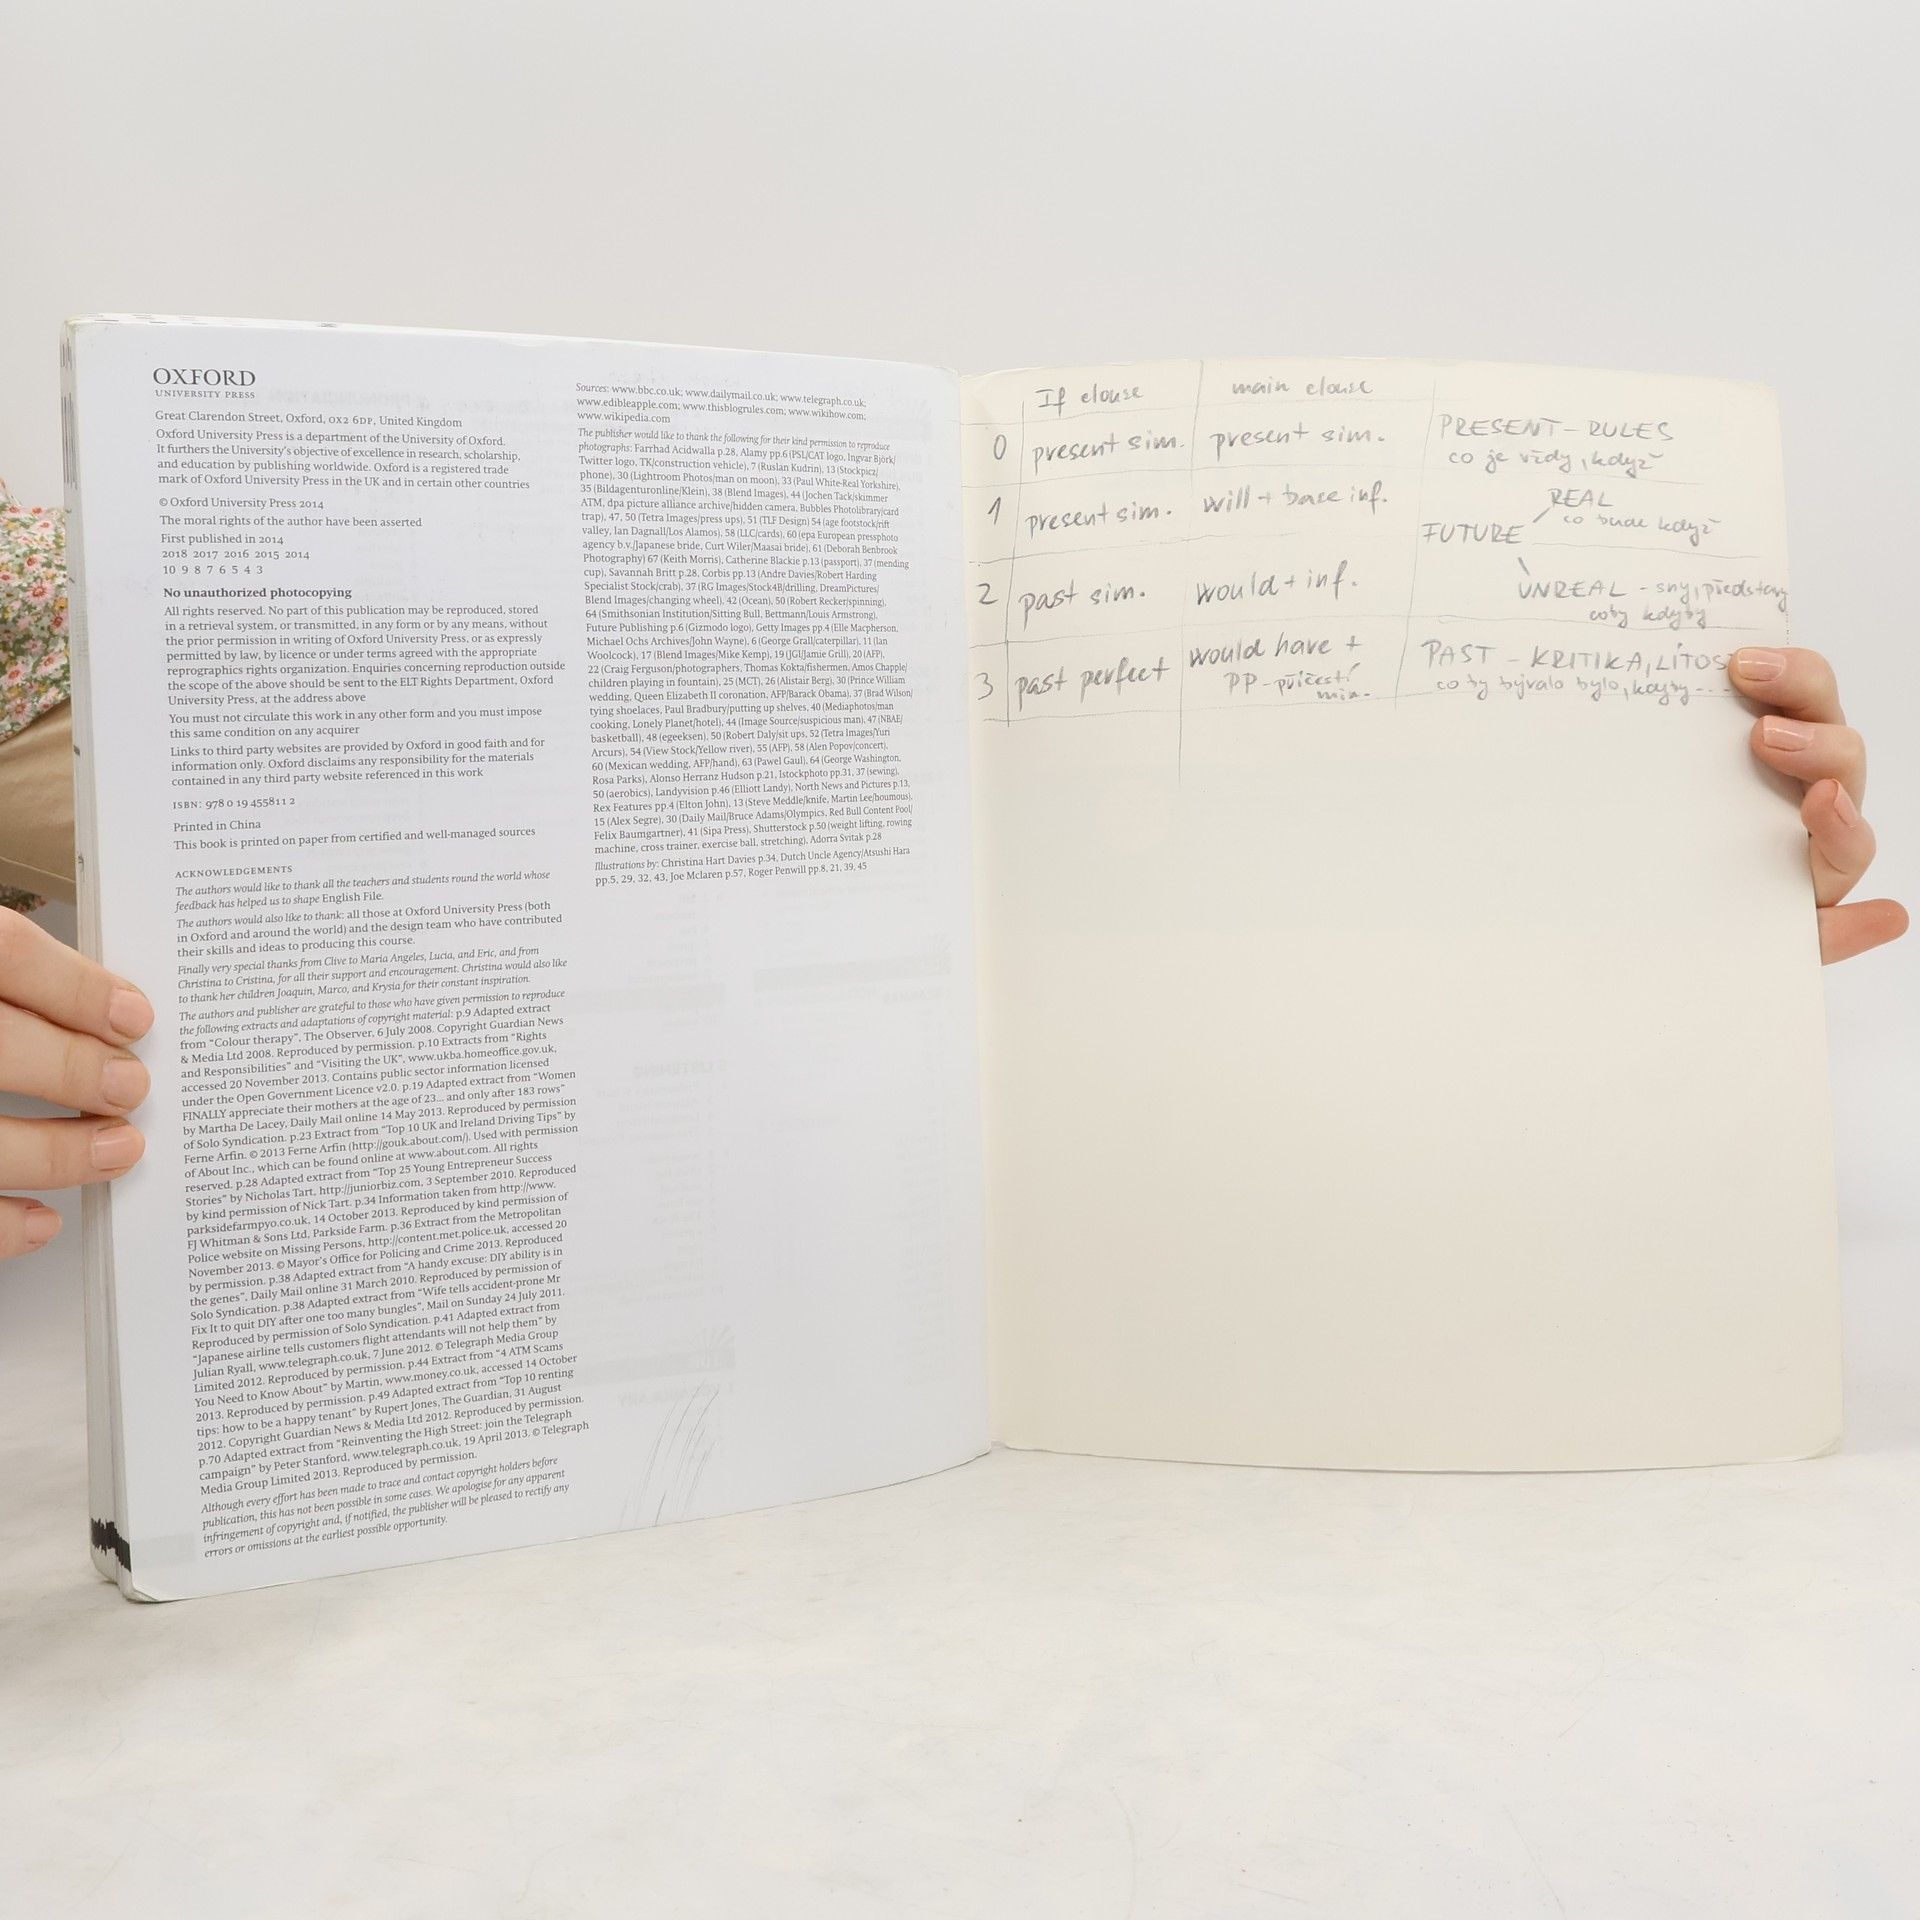 OXFORD
UNIVERSITY PRESS
Great Clarendon Street, Oxford, OX2 6DP, United Kingdom
Oxford University Press is a department of the University of Oxford.
It furthers the University's objective of excellence in research, scholarship,
and education by publishing worldwide. Oxford is a registered trade
mark of Oxford University Press in the UK and in certain other countries
© Oxford University Press 2014
The moral rights of the author have been asserted
First published in 2014
2018 2017 2016 2015 2014
10 9 8 7 6 5 4 3
No unauthorized photocopying
All rights reserved. No part of this publication may be reproduced, stored
in a retrieval system, or transmitted, in any form or by any means, without
the prior permission in writing of Oxford University Press, or as expressly
permitted by law, by licence or under terms agreed with the appropriate
reprographics rights organization. Enquiries concerning reproduction outside
the scope of the above should be sent to the ELT Rights Department, Oxford
University Press, at the address above
You must not circulate this work in any other form and you must impose
this same condition on any acquirer
Links to third party websites are provided by Oxford in good faith and for
information only. Oxford disclaims any responsibility for the materials
contained in any third party website referenced in this work
ISBN: 978 0 19 455811 2
Printed in China
This book is printed on paper from certified and well-managed sources
ACKNOWLEDGEMENTS
The authors would like to thank all the teachers and students round the world whose
feedback has helped us to shape English File.
The authors would also like to thank: all those at Oxford University Press (both
in Oxford and around the world) and the design team who have contributed
their skills and ideas to producing this course.
Finally very special thanks from Clive to Maria Angeles, Lucia, and Eric, and from
Christina to Cristina, for all their support and encouragement. Christina would also like
to thank her children Joaquin, Marco, and Krysia for their constant inspiration.
The authors and publisher are grateful to those who have given permission to reproduce
the following extracts and adaptations of copyright material: p.9 Adapted extract
from "Colour therapy", The Observer, 6 July 2008. Copyright Guardian News
& Media Ltd 2008. Reproduced by permission. p.10 Extracts from "Rights
and Responsibilities" and "Visiting the UK", www.ukba.homeoffice.gov.uk,
accessed 20 November 2013. Contains public sector information licensed
under the Open Government Licence v2.0. p.19 Adapted extract from "Women
FINALLY appreciate their mothers at the age of 23... and only after 183 rows"
by Martha De Lacey, Daily Mail online 14 May 2013. Reproduced by permission
of Solo Syndication. p.23 Extract from "Top 10 UK and Ireland Driving Tips" by
Ferne Arfin. © 2013 Ferne Arfin (http://gouk.about.com/). Used with permission
of About Inc., which can be found online at www.about.com. All rights
reserved. p.28 Adapted extract from "Top 25 Young Entrepreneur Success
Stories" by Nicholas Tart, http://juniorbiz.com, 3 September 2010. Reproduced
by kind permission of Nick Tart. p.34 Information taken from http://www.
parksidefarmpyo.co.uk, 14 October 2013. Reproduced by kind permission of
FJ Whitman & Sons Ltd, Parkside Farm. p.36 Extract from the Metropolitan
Police website on Missing Persons, http://content.met.police.uk, accessed 20
November 2013. © Mayor's Office for Policing and Crime 2013. Reproduced
by permission. p.38 Adapted extract from "A handy excuse: DIY ability is in
the genes", Daily Mail online 31 March 2010. Reproduced by permission of
Solo Syndication. p.38 Adapted extract from "Wife tells accident-prone Mr
Fix It to quit DIY after one too many bungles", Mail on Sunday 24 July 2011.
Reproduced by permission of Solo Syndication. p.41 Adapted extract from
"Japanese airline tells customers flight attendants will not help them" by
Julian Ryall, www.telegraph.co.uk, 7 June 2012. © Telegraph Media Group
Limited 2012. Reproduced by permission. p.44 Extract from "4 ATM Scams
You Need to Know About" by Martin, www.money.co.uk, accessed 14 October
2013. Reproduced by permission. p.49 Adapted extract from "Top 10 renting
tips: how to be a happy tenant" by Rupert Jones, The Guardian, 31 August
2012. Copyright Guardian News & Media Ltd 2012. Reproduced by permission.
p.70 Adapted extract from "Reinventing the High Street: join the Telegraph
campaign" by Peter Stanford, www.telegraph.co.uk, 19 April 2013. © Telegraph
Media Group Limited 2013. Reproduced by permission.
Although every effort has been made to trace and contact copyright holders before
publication, this has not been possible in some cases. We apologise for any apparent
infringement of copyright and, if notified, the publisher will be pleased to rectify any
errors or omissions at the earliest possible opportunity.
Sources: www.bbc.co.uk; www.dailymail.co.uk; www.telegraph.co.uk;
www.edibleapple.com; www.thisblogrules.com; www.wikihow.com;
www.wikipedia.com
The publisher would like to thank the following for their kind permission to reproduce
photographs: Farrhad Acidwalla p.28, Alamy pp.6 (PSL/CAT logo, Ingvar Björk/
Twitter logo, TK/construction vehicle), 7 (Ruslan Kudrin), 13 (Stockpicz/
phone), 30 (Lightroom Photos/man on moon), 33 (Paul White-Real Yorkshire),
35 (Bildagenturonline/Klein), 38 (Blend Images), 44 (Jochen Tack/skimmer
ATM, dpa picture alliance archive/hidden camera, Bubbles Photolibrary/card
trap), 47, 50 (Tetra Images/press ups), 51 (TLF Design) 54 (age footstock/rift
valley, Ian Dagnall/Los Alamos), 58 (LLC/cards), 60 (epa European pressphoto
agency b.v./Japanese bride, Curt Wiler/Maasai bride), 61 (Deborah Benbrook
Photography) 67 (Keith Morris), Catherine Blackie p.13 (passport), 37 (mending
cup), Savannah Britt p.28, Corbis pp.13 (Andre Davies/Robert Harding
Specialist Stock/crab), 37 (RG Images/Stock4B/drilling, DreamPictures/
Blend Images/changing wheel), 42 (Ocean), 50 (Robert Recker/spinning),
64 (Smithsonian Institution/Sitting Bull, Bettmann/Louis Armstrong),
Future Publishing p.6 (Gizmodo logo), Getty Images pp.4 (Elle Macpherson,
Michael Ochs Archives/John Wayne), 6 (George Grall/caterpillar), 11 (Ian
Woolcock), 17 (Blend Images/Mike Kemp), 19 (JGI/Jamie Grill), 20 (AFP),
22 (Craig Ferguson/photographers, Thomas Kokta/fishermen, Amos Chapple/
children playing in fountain), 25 (MCT), 26 (Alistair Berg), 30 (Prince William
wedding, Queen Elizabeth II coronation, AFP/Barack Obama), 37 (Brad Wilson/
tying shoelaces, Paul Bradbury/putting up shelves, 40 (Mediaphotos/man
cooking, Lonely Planet/hotel), 44 (Image Source/suspicious man), 47 (NBAE/
basketball), 48 (egeeksen), 50 (Robert Daly/sit ups, 52 (Tetra Images/Yuri
Arcurs), 54 (View Stock/Yellow river), 55 (AFP), 58 (Alen Popov/concert),
60 (Mexican wedding, AFP/hand), 63 (Pawel Gaul), 64 (George Washington,
Rosa Parks), Alonso Herranz Hudson p.21, Istockphoto pp.31, 37 (sewing),
50 (aerobics), Landyvision p.46 (Elliott Landy), North News and Pictures p.13,
Rex Features pp.4 (Elton John), 13 (Steve Meddle/knife, Martin Lee/houmous),
15 (Alex Segre), 30 (Daily Mail/Bruce Adams/Olympics, Red Bull Content Pool/
Felix Baumgartner), 41 (Sipa Press), Shutterstock p.50 (weight lifting, rowing
machine, cross trainer, exercise ball, stretching), Adorra Svitak p.28
Illustrations by: Christina Hart Davies p.34, Dutch Uncle Agency/Atsushi Hara
pp.5, 29, 32, 43, Joe Mclaren p.57, Roger Penwill pp.8, 21, 39, 45
If clouse main clouse
0 present sim. present sim. PRESENT - RULES
co je vždy, když
1 present sim. will + base inf. REAL
co bude když
FUTURE
2 past sim. would + inf. UNREAL - sny, představy
coby kdyby
3 past perfect would have + PAST - KRITIKA, LÍTOS
PP - příčestí min. co by bývalo bylo, kdyby...